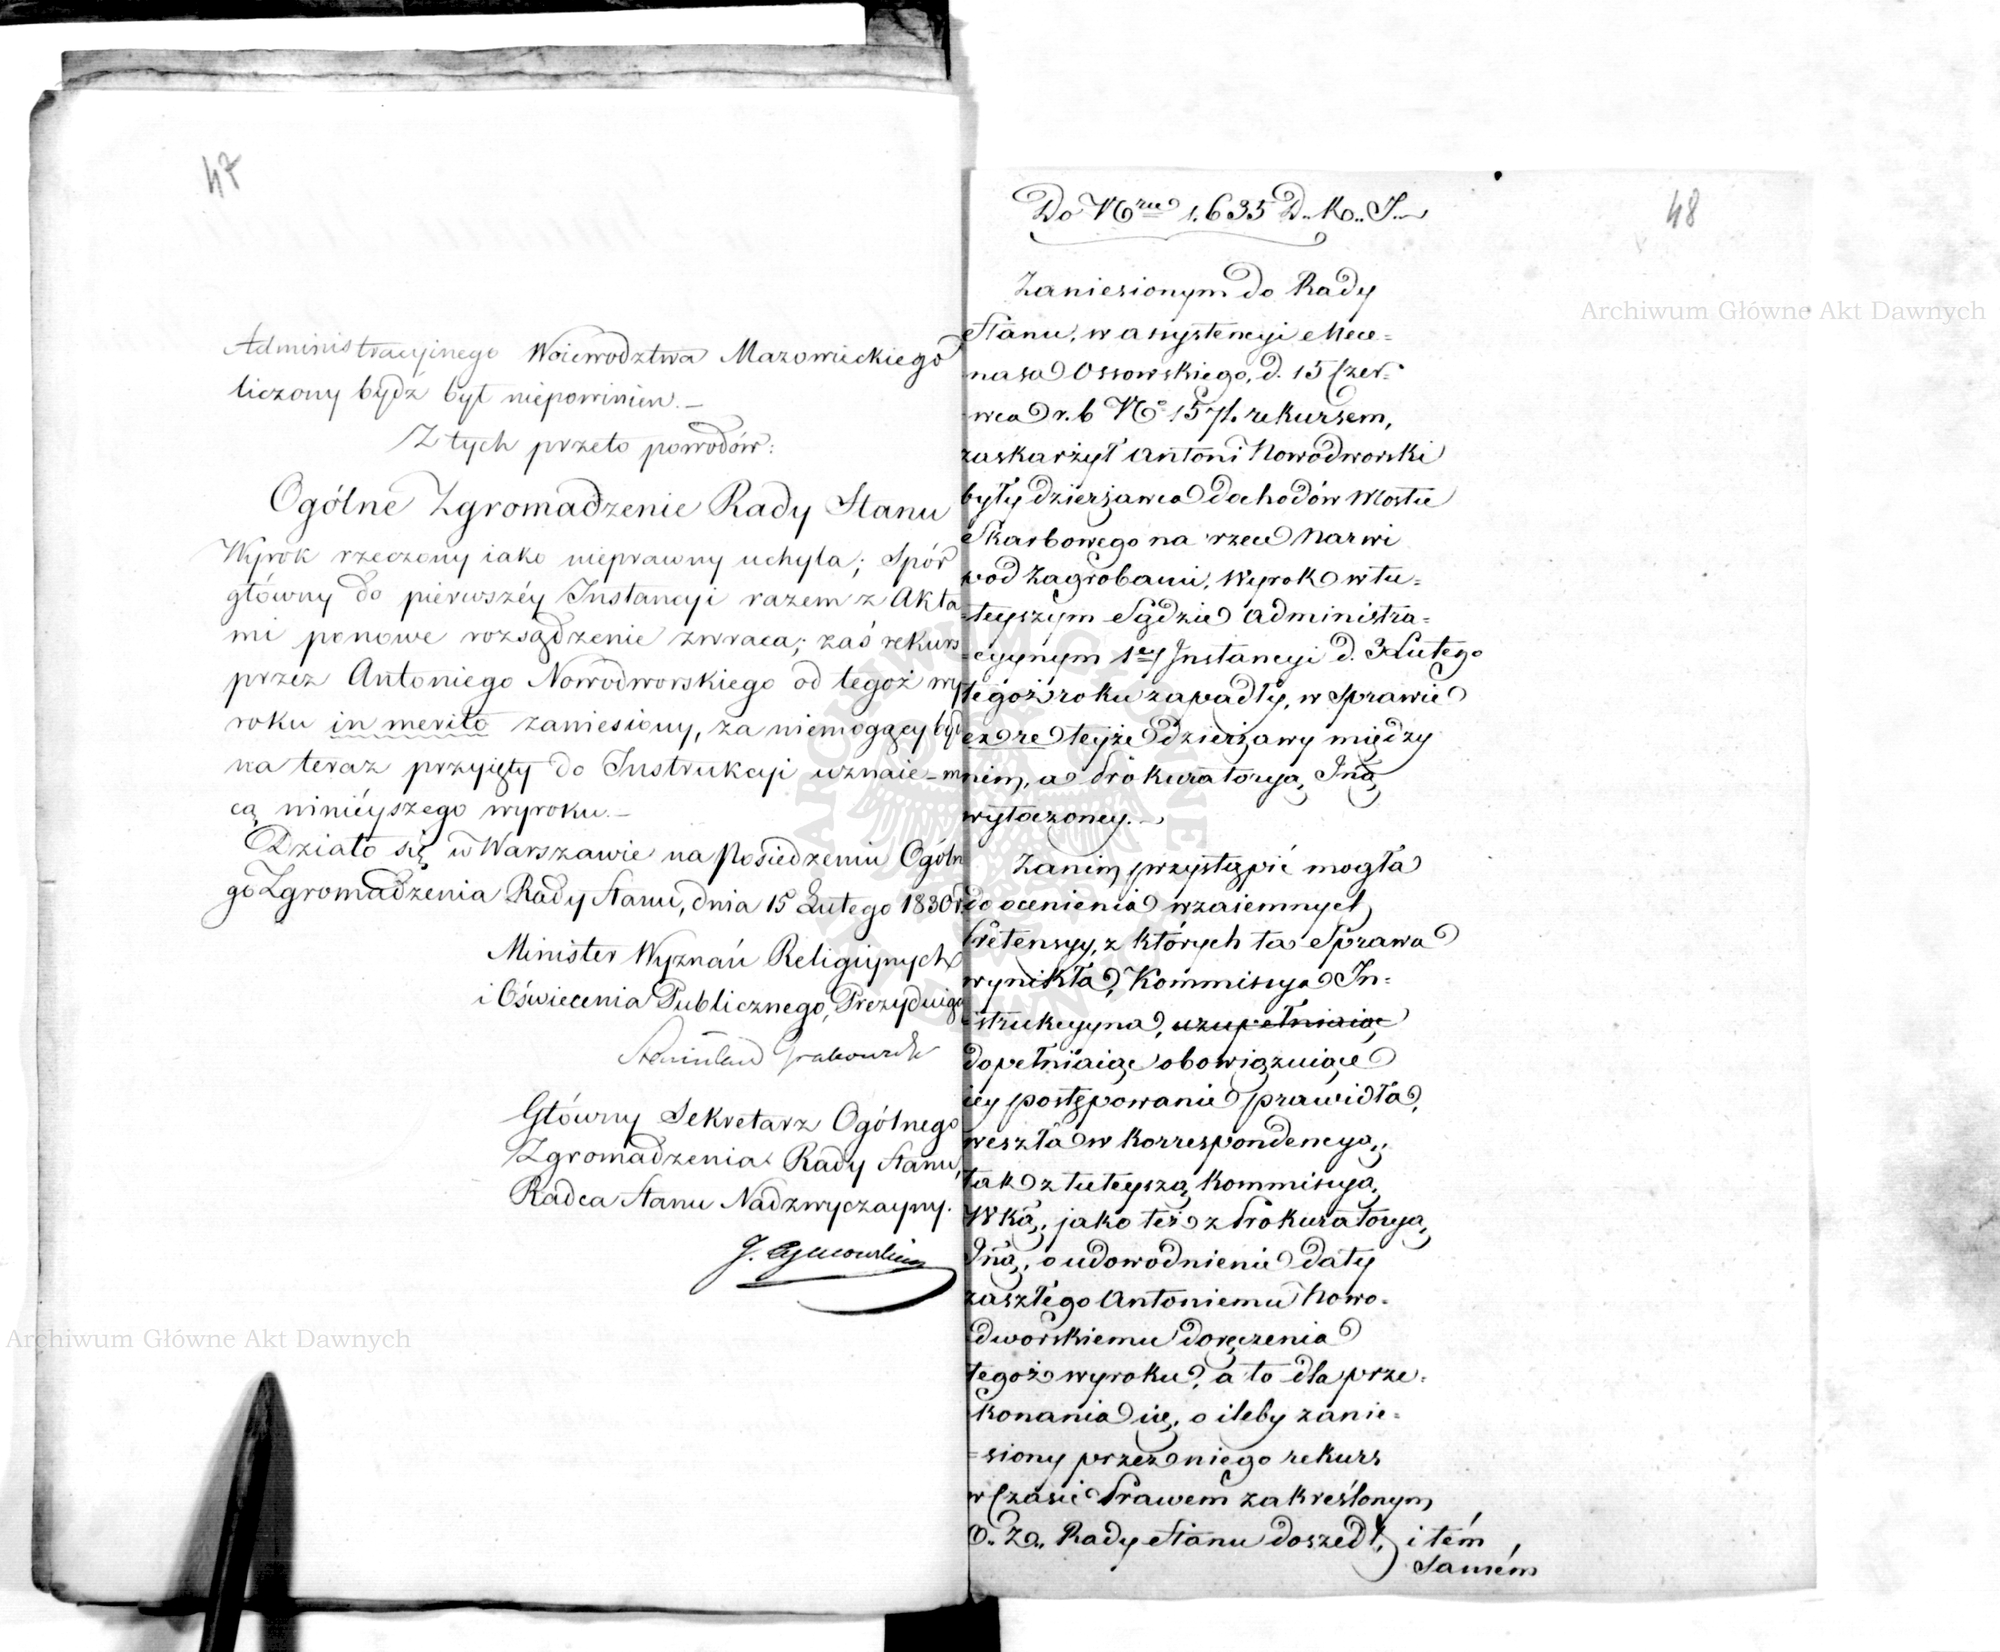 47
Administracyinego Woiewodztwa Mazowieckiego
liczony bydź był niepowinien.—
Z tych przeto powodów:
Ogólne Zgromadzenie Rady Stanu
Wyrok rzeczony iako nieprawny uchyla; Spór
główny do pierwszéy Instancyi razem z Akta
mi ponowe rozsądzenie zwraca; zaś rekurs
przez Antoniego Nowodworskiego od tegoż wy
roku in merito zaniesiony, za niemogący być
na teraz przyięty do Instrukcyi uznaie – m
cą ninieyszego wyroku.—
Działo się w Warszawie na Posiedzeniu Ogóln
go Zgromadzenia Rady Stanu, dnia 15 Lutego 1830 r.
Minister Wyznań Religijnych
i Oświecenia Publicznego, Prezyduiąc
Stanisław Grabowski
Główny Sekretarz Ogólnego
Zgromadzenia Rady Stanu,
Radca Stanu Nadzwyczayny.
48
Do Nru 1.635 D.. K.. J..
Zaniesionym do Rady
Stanu, w assystencyi Mece=
nasa Ossowskiego, d. 15 Czer=
wca r. b No 1571. rekursem,
zaskarżył Antoni Nowodworski
były dzierżawca dochodów Mostu
Skarbowego na rzece Narwi
pod Zagrobami, Wyrok w tu=
=teyszym Sądzie Administra=
=cyynym 1ey Instancyi d. 3 Lutego
tegoż roku zapadły, w sprawie
ex re teyże dzierżawy między
nim, a Prokuratoryą Jńą
wytoczoney.—
Zanim przystąpić mogła
do ocenienia wzaiemnych
Pretensyy, z których ta Sprawa
wynikła, Kommissya In=
=strukcyyna, uzupełniaiąc
dopełniaiąc obowiązuiące
iey postępowanie prawidła,
weszła w Korrespondencyą,
tak z tuteyszą Kommissyą
Wką, jako też z Prokuratoryą
Jńą, o udowodnienie daty
zaszłego Antoniemu Nowo=
dworskiemu doręczenia
tegoż wyroku, a to dla prze=
konania się, o ileby zanie=
=siony przez niego rekurs
w Czasie Prawem zakreślonym
O.. Z.. Rady Stanu doszedł, i tém
samém
Archiwum Główne Akt Dawnych
Archiwum Główne Akt Dawnych